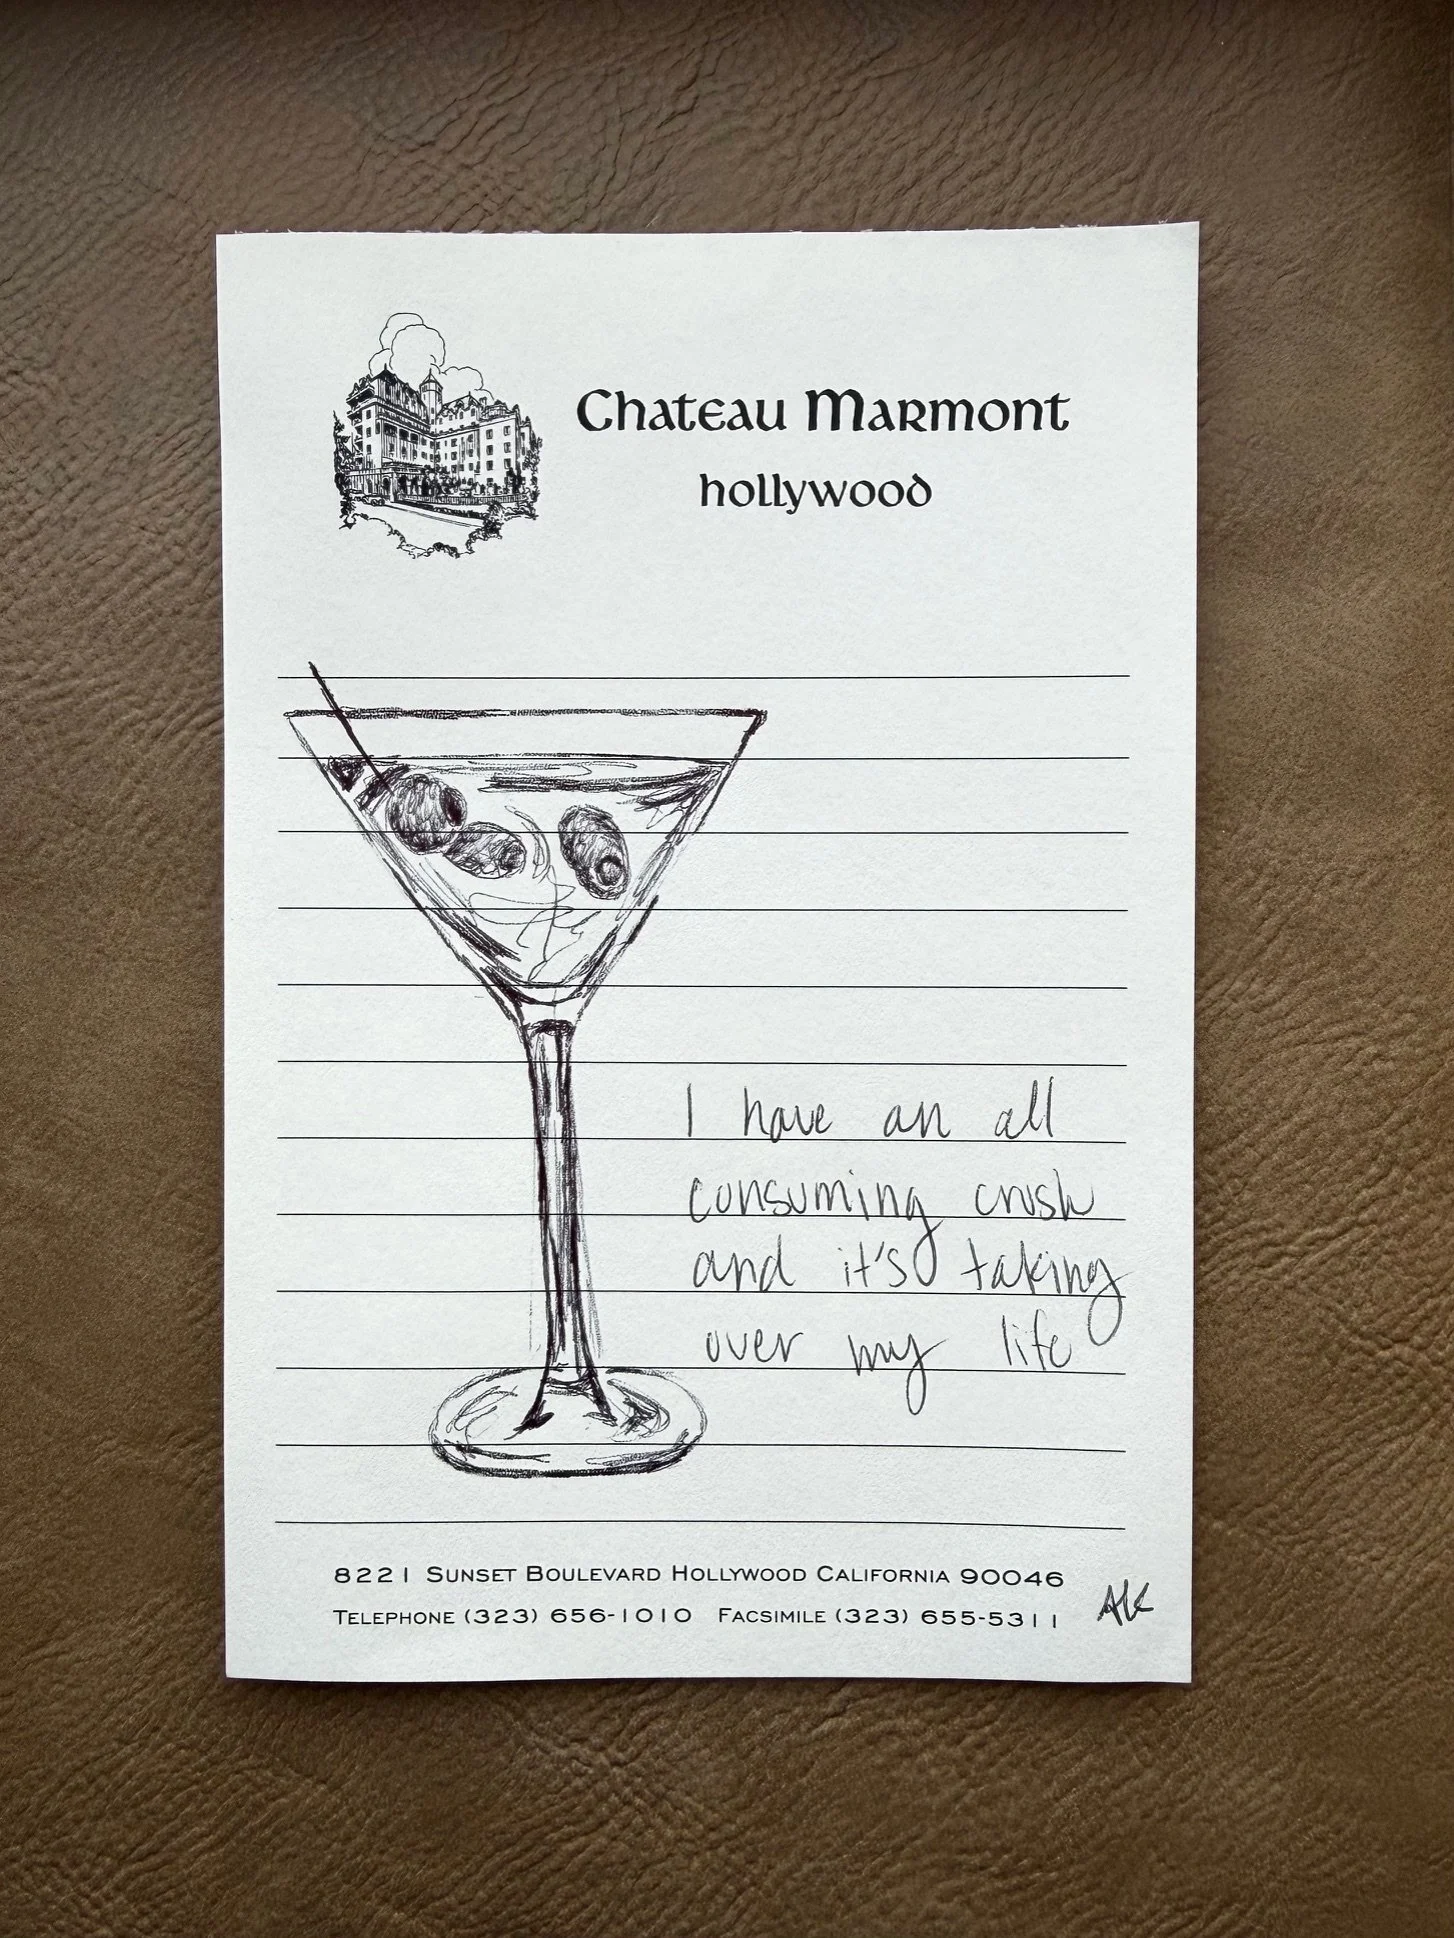 Chateau Marmont
hollywood
I have an all
consuming crush
and it's taking
over my life
8221 Sunset Boulevard Hollywood California 90046
Telephone (323) 656-1010 Facsimile (323) 655-5311
AK